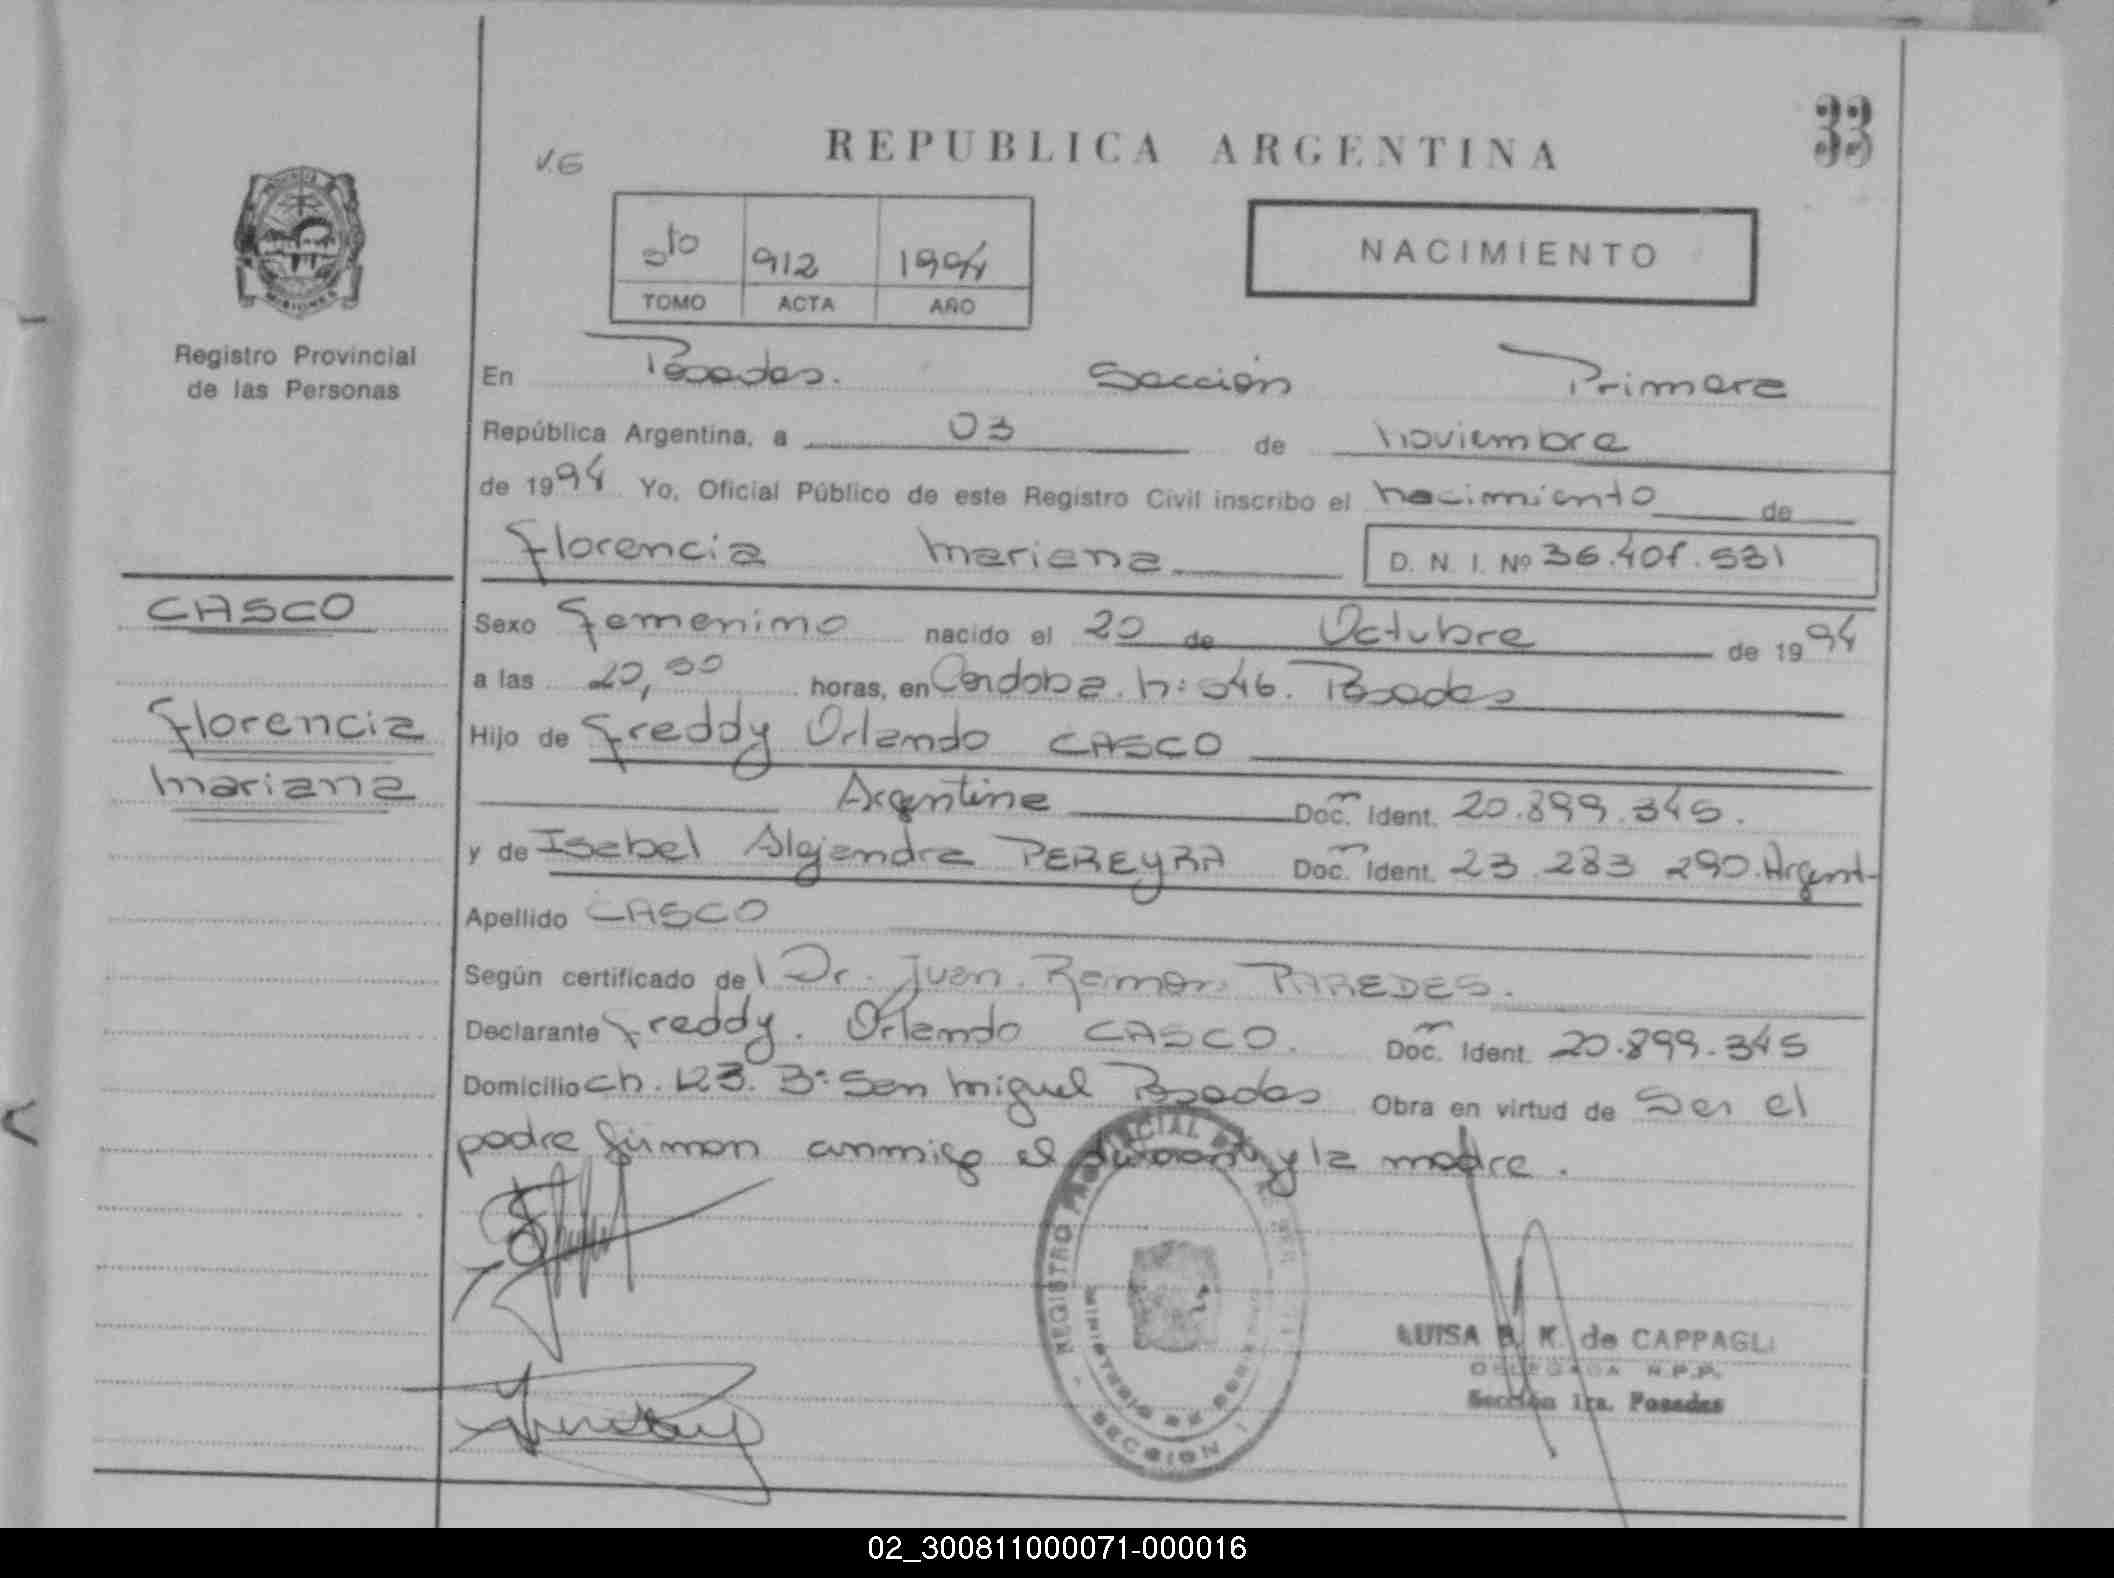 33
REPUBLICA ARGENTINA
V.G
5to 912 1994
TOMO ACTA AÑO
NACIMIENTO
Registro Provincial
de las Personas
En Posadas. Sección Primera
República Argentina, a 03 de noviembre
de 1994 Yo, Oficial Público de este Registro Civil inscribo el nacimiento de
Florencia Mariana D. N. I. Nº
CASCO
Florencia
Mariana
Sexo Femenino nacido el 20 de Octubre de 1994
a las 20,00 horas, en Cordoba. n: 546. Posadas
Hijo de Freddy Orlando CASCO
Argentina Doc. Ident. 20.899.345.
y de Isabel Alejandra PEREYRA Doc. Ident. 23 283 290. Argent.
Apellido CASCO
Según certificado del Dr. Juan Ramon PAREDES.
Declarante Freddy. Orlando CASCO. Doc. Ident. 20.899.345
Domicilio Ch. 123. Bº San Miguel Posadas Obra en virtud de Ser el
padre firman conmigo el y la madre.
REGISTRO PROVINCIAL DE LAS PERSONAS
MINISTERIO DE GOBIERNO
- SECCION I
LUISA B. K. de CAPPAGLI
DELEGADA R.P.P.
Sección 1ra. Posadas
02_300811000071-000016